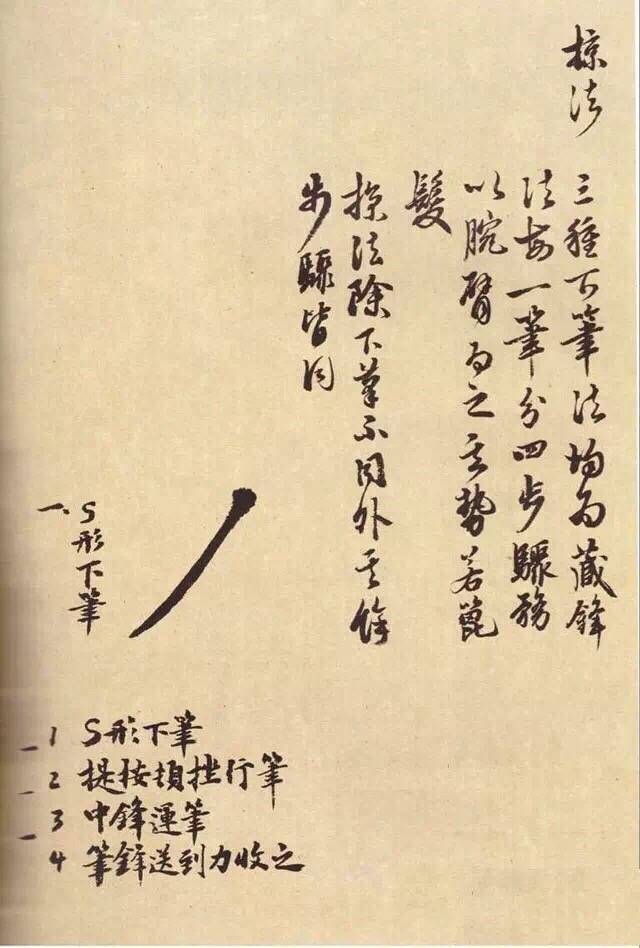 掠法
三種下筆法均為藏鋒
法每一筆分四步驟務
以腕臂為之其勢若篦
髮
掠法除下筆不同外其餘
步驟皆同
一、S形下筆
1 S形下筆
2 提按頓挫行筆
3 中鋒運筆
4 筆鋒送到力收之